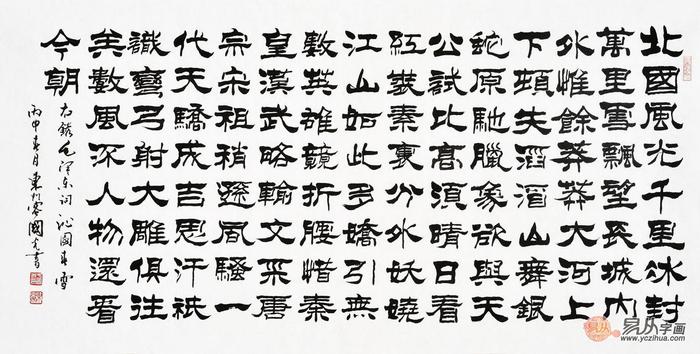 北國風光千里冰封
萬里雪飄望長城內
外惟餘莽莽大河上
下頓失滔滔山舞銀
蛇原馳臘象欲與天
公試比高須晴日看
紅裝素裹分外妖嬈
江山如此多嬌引無
數英雄競折腰惜秦
皇漢武略輸文采唐
宗宋祖稍遜風騷一
代天驕成吉思汗祇
識彎弓射大雕俱往
矣數風流人物還看
今朝
右錄毛澤東詞沁園春雪
丙申春月國光書
易从
易从字画
www.yczihua.com